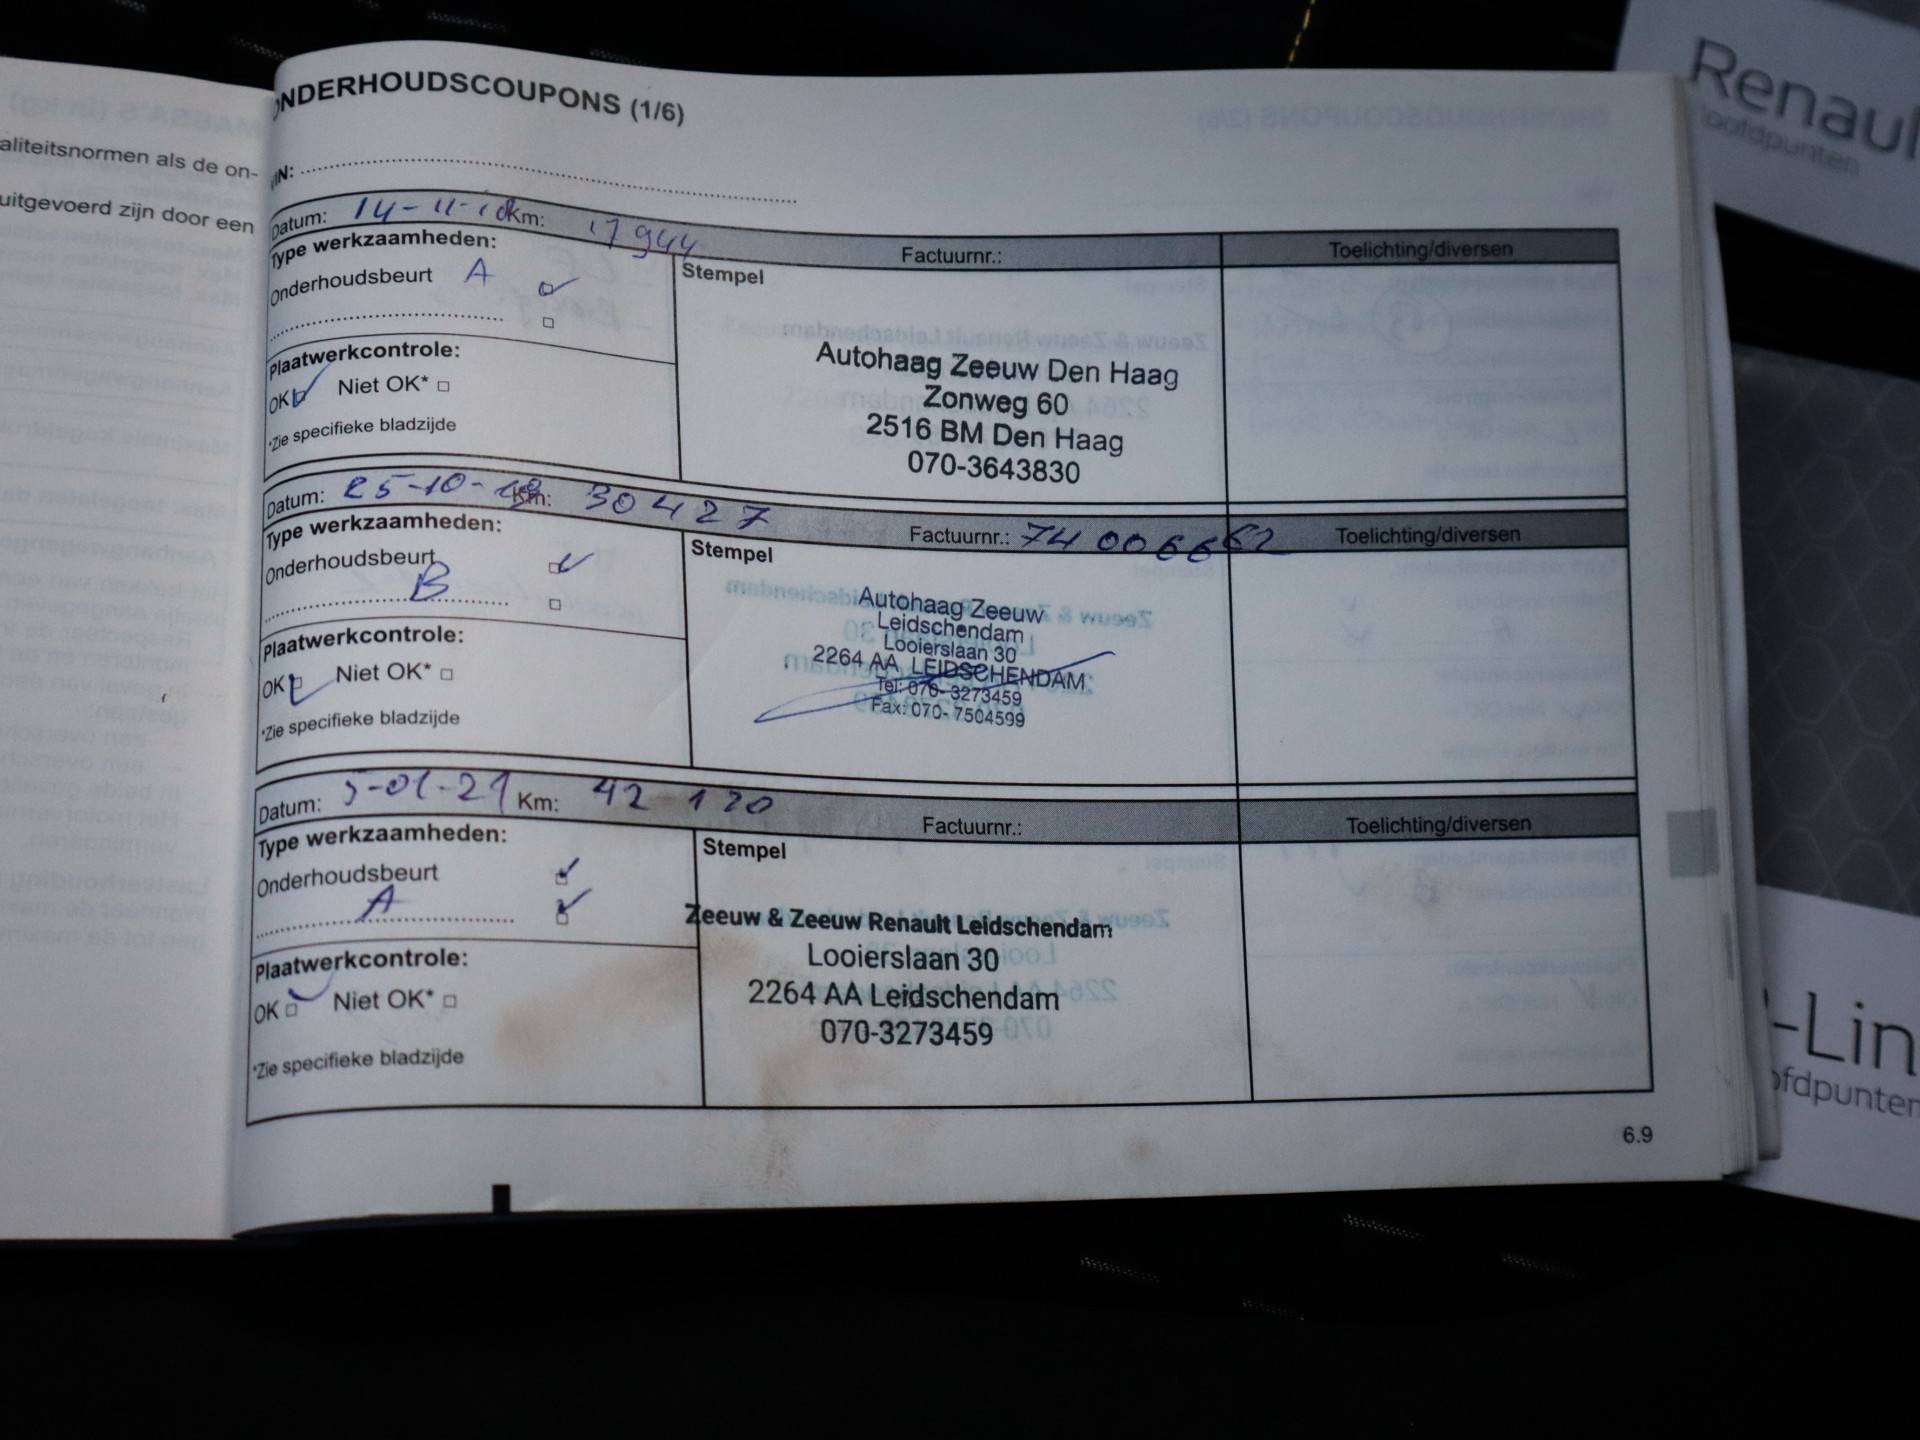 aliteitsnormen als de on-
uitgevoerd zijn door een
ONDERHOUDSCOUPONS (1/6)
VIN:
Datum: 14-11-18 Km: 17944 Factuurnr.: Toelichting/diversen
Type werkzaamheden:
Onderhoudsbeurt A
Stempel
Plaatwerkcontrole:
OK Niet OK*
*Zie specifieke bladzijde
Autohaag Zeeuw Den Haag
Zonweg 60
2516 BM Den Haag
070-3643830
Datum: 25-10-19 Km: 30427 Factuurnr.: 74006662 Toelichting/diversen
Type werkzaamheden:
Onderhoudsbeurt
B
Stempel
Plaatwerkcontrole:
OK Niet OK*
*Zie specifieke bladzijde
Autohaag Zeeuw
Leidschendam
Looierslaan 30
2264 AA LEIDSCHENDAM
Tel: 070-3273459
Fax: 070-7504599
Datum: 5-01-21 Km: 42 120 Factuurnr.: Toelichting/diversen
Type werkzaamheden:
Onderhoudsbeurt
A
Stempel
Plaatwerkcontrole:
OK Niet OK*
*Zie specifieke bladzijde
Zeeuw & Zeeuw Renault Leidschendam
Looierslaan 30
2264 AA Leidschendam
070-3273459
6.9
Renaul
hoofdpunten
-Lin
ofdpunten